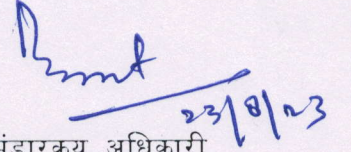 23/8/23
भंडारक्रय अधिकारी